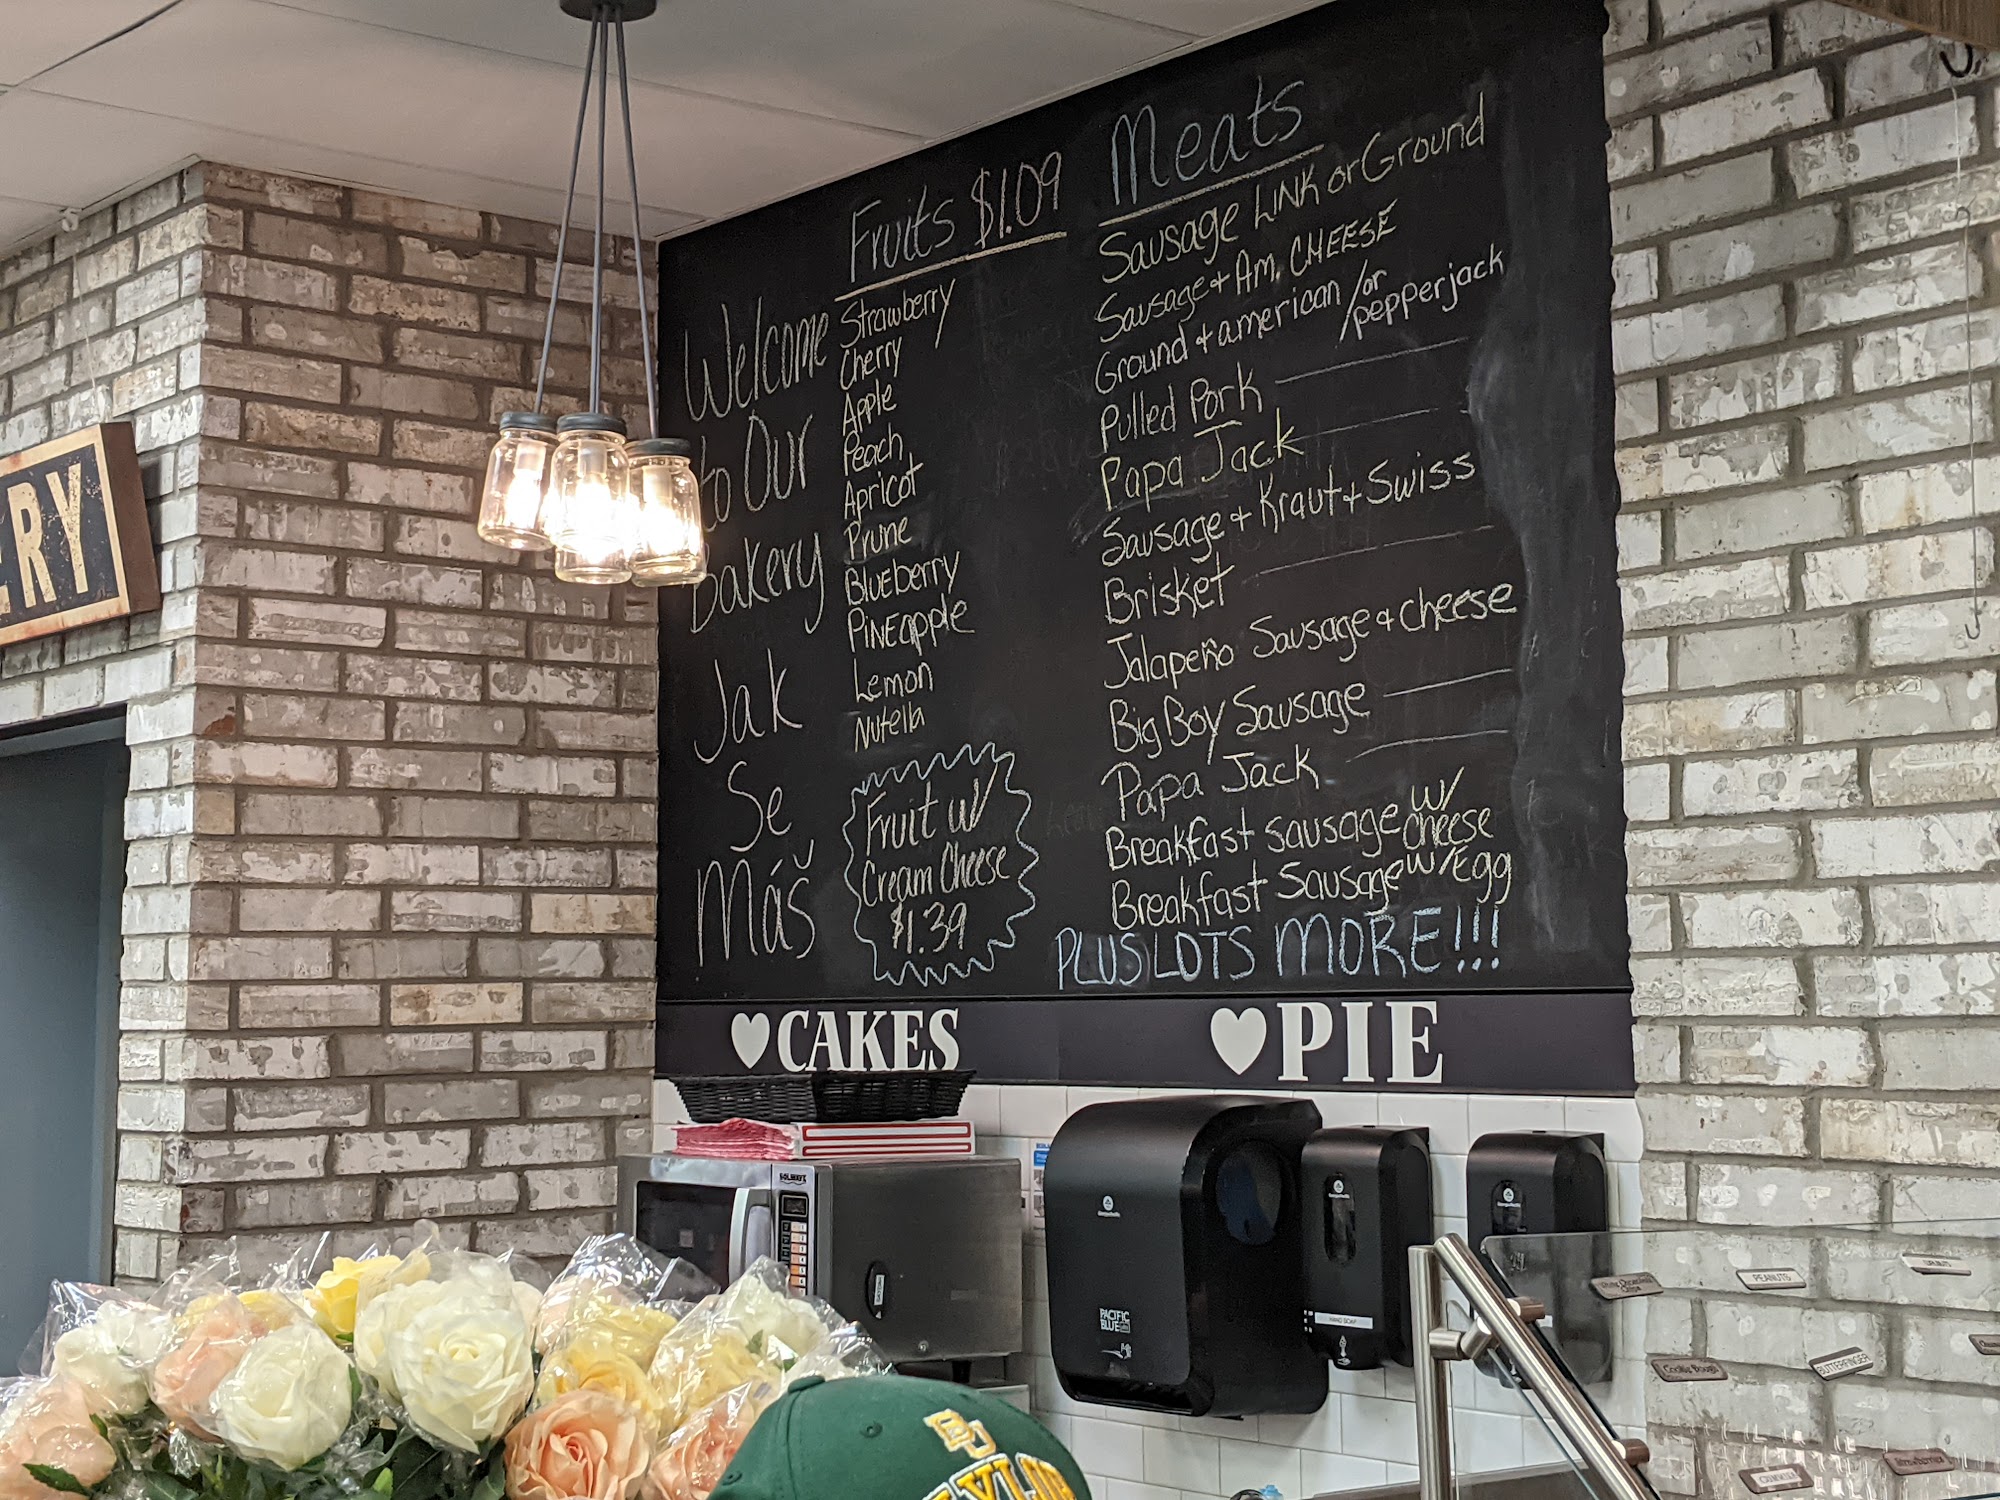 ERY
Welcome
to Our
Bakery
Jak
Se
Máš
Fruits $1.09
Strawberry
Cherry
Apple
Peach
Apricot
Prune
Blueberry
Pineapple
Lemon
Nutella
Fruit w/
Cream Cheese
$1.39
Meats
Sausage LINK or Ground
Sausage + Am. CHEESE
Ground + american / or pepperjack
Pulled Pork
Papa Jack
Sausage + Kraut + Swiss
Brisket
Jalapeño Sausage + cheese
Big Boy Sausage
Papa Jack
Breakfast sausage w/ cheese
Breakfast Sausage w/ Egg
PLUS LOTS MORE!!!
CAKES
PIE
PACIFIC
BLUE
HAND SOAP
PEANUTS
Cookie Dough
BUTTERFINGER
BU